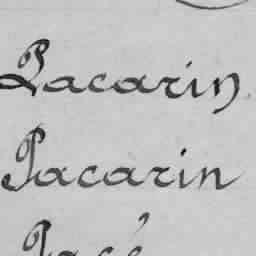 Pacarin
Pacarin